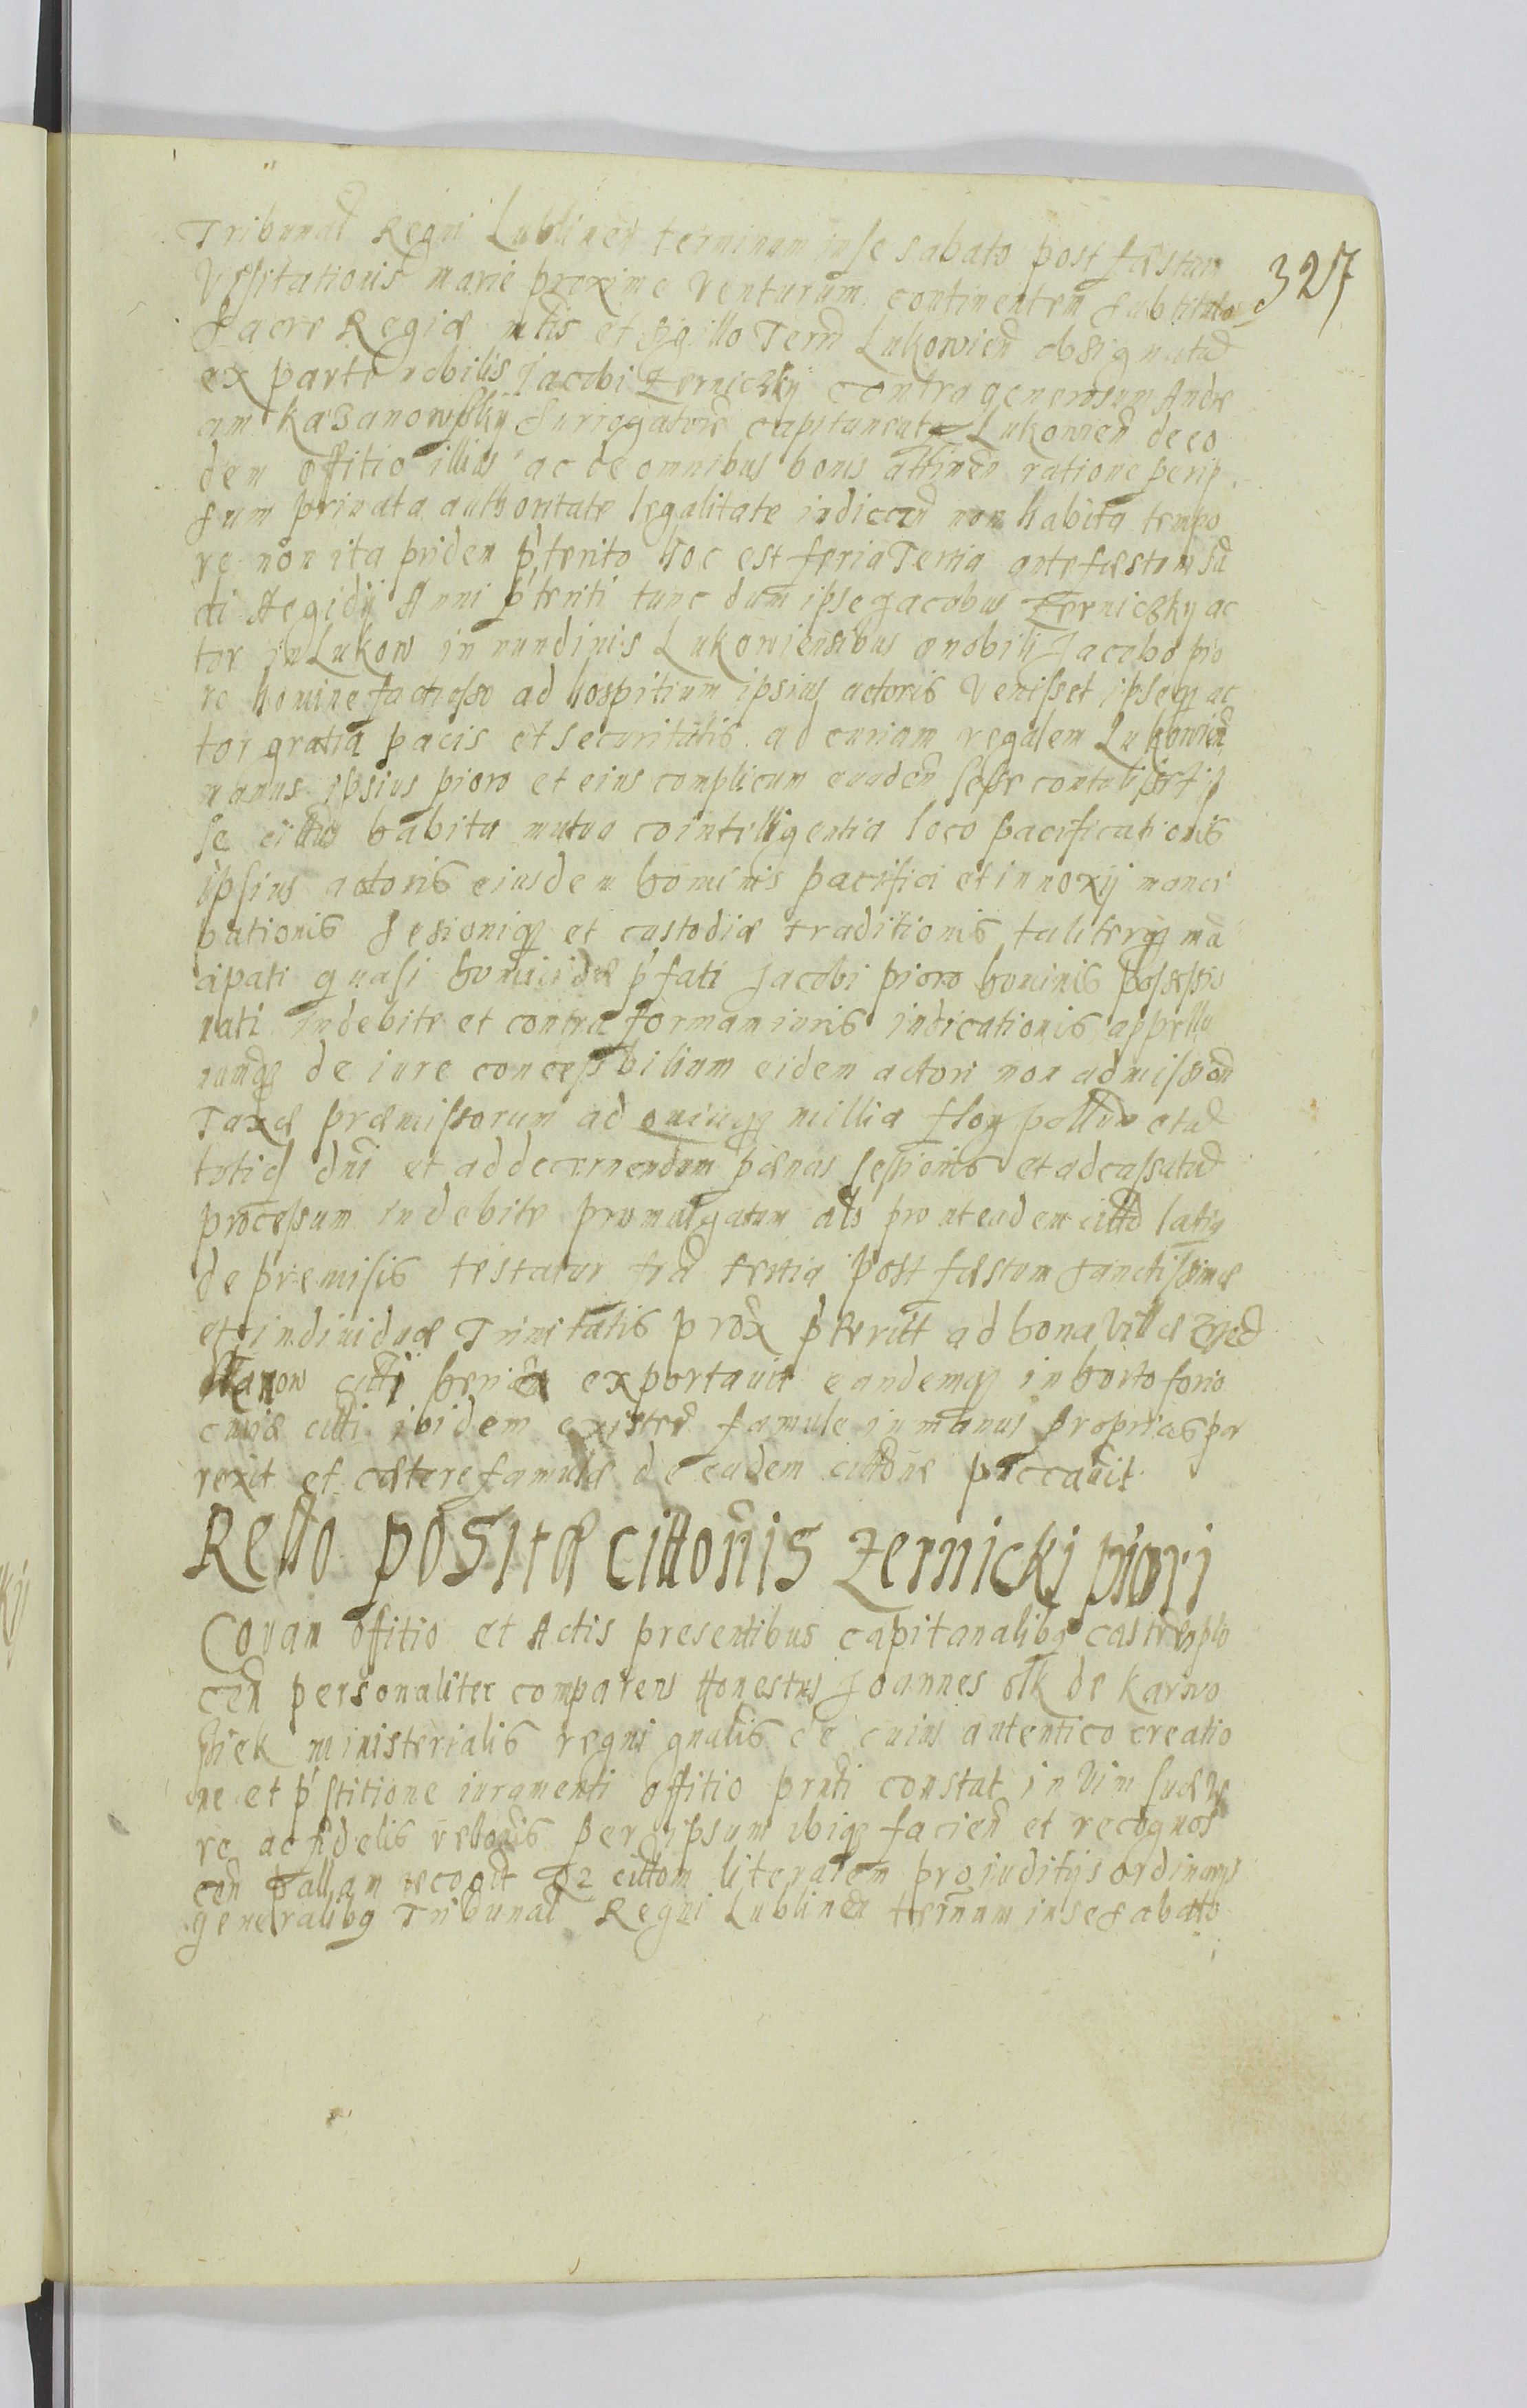 327
Tribunal Regni Lublinen terminum in se sabato post fæstum
Visitationis marie proxime Venturum continentem sub titulo
Sacre Regiæ mtis et sigillo Terrñ Lukowien obsignatã
ex parte nobilis Jacobi Zerniczky contra generosum Andre
am Kazanowsky Surrogatorẽ capitaneat Lukowien de eo
dem offitio illius ac de omnibus bonis attinen ratione per ip
sum priuata authoritate legalitate iudiccañ non habita tempo
re non ita pridem pterito hoc est feria Tertia ante fæstum sã
cti Aegidij Anni pteriti tunc dum ipse Jacobus Zerniczky ac
tor in Lukow in nundinis Lukowiensibus a nobili Jacobo pio
ro homine factioso ad hospitium ipsius actoris Venisset ipseq ac
tor gratia pacis et securitatis ad curiam regalem Lukowien
manus ipsius pioro et eius complicum euaden sese contulisset ip
se cittus habita mutua cointelligentia loco pacificationis
ipsius actoris eiusdem hominis pacifici et innoxij manci
pationis sesioniq et custodiæ traditionis taliterq mã
cipati quasi homicidæ pfati Jacobi pioro hominis possessio
nati indebite et contra formam iuris iudicationis appella
numq de iure concessibilium eidem actori non admission
Taxæ præmissorum ad quinq millia flor pollun et ad
totiq dni et ad decernendum pænas sessionis et ad cassatũ
processum indebite promulgatum als prout eadem citto latiq
de premisis testatur fra tertia post fæstum sanctissimæ
et indiuiduæ Trinitatis prox pteritt ad bona Villæ
citti exportauit eandemq in horto forio
curiæ citti ibidem existen famule in manus proprias por
rexit et cætere famulæ de eadem cittone præcauit
Rello positæ cittonis Zernicki piori
Coram offitio et Actis presentibus capitanalibq castren plo
cen personaliter comparens Honestus Joannes olk de Karwo
siek ministerialis regni gnalis de cuius autentico creatio
ne et pstitione iuramenti offitio prnti constat in Vim suæ Ve
re ac fidelis rellonis per ipsum ubiq facien et recognos
cen pallam recogit Qz cittom literalem pro iuditijs ordinarijs
generalibq Tribunal Regni Lublinen terñnum in se sabatto